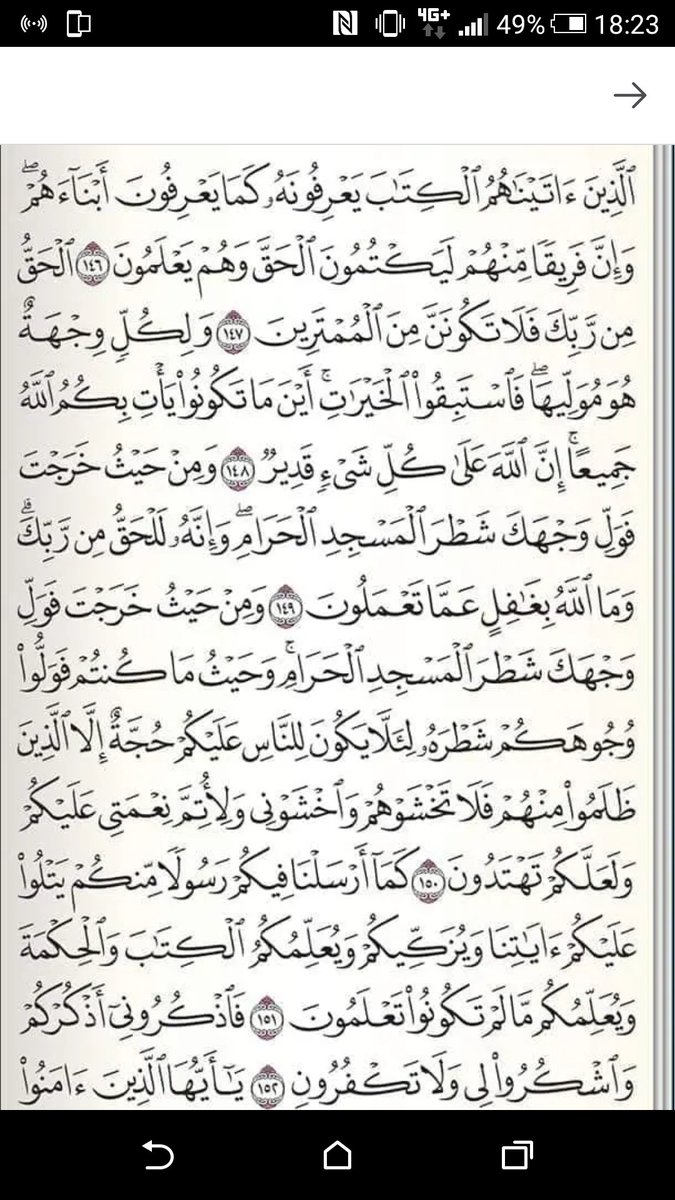 4G+ 49% 18:23
ٱلَّذِينَ ءَاتَيْنَٰهُمُ ٱلْكِتَٰبَ يَعْرِفُونَهُۥ كَمَا يَعْرِفُونَ أَبْنَآءَهُمْ ۖ
وَإِنَّ فَرِيقًا مِّنْهُمْ لَيَكْتُمُونَ ٱلْحَقَّ وَهُمْ يَعْلَمُونَ ١٤٦ ٱلْحَقُّ
مِن رَّبِّكَ فَلَا تَكُونَنَّ مِنَ ٱلْمُمْتَرِينَ ١٤٧ وَلِكُلٍّ وِجْهَةٌ
هُوَ مُوَلِّيهَا ۖ فَٱسْتَبِقُوا۟ ٱلْخَيْرَٰتِ ۚ أَيْنَ مَا تَكُونُوا۟ يَأْتِ بِكُمُ ٱللَّهُ
جَمِيعًا ۚ إِنَّ ٱللَّهَ عَلَىٰ كُلِّ شَىْءٍ قَدِيرٌ ١٤٨ وَمِنْ حَيْثُ خَرَجْتَ
فَوَلِّ وَجْهَكَ شَطْرَ ٱلْمَسْجِدِ ٱلْحَرَامِ ۖ وَإِنَّهُۥ لَلْحَقُّ مِن رَّبِّكَ ۗ
وَمَا ٱللَّهُ بِغَٰفِلٍ عَمَّا تَعْمَلُونَ ١٤٩ وَمِنْ حَيْثُ خَرَجْتَ فَوَلِّ
وَجْهَكَ شَطْرَ ٱلْمَسْجِدِ ٱلْحَرَامِ ۚ وَحَيْثُ مَا كُنتُمْ فَوَلُّوا۟
وُجُوهَكُمْ شَطْرَهُۥ لِئَلَّا يَكُونَ لِلنَّاسِ عَلَيْكُمْ حُجَّةٌ إِلَّا ٱلَّذِينَ
ظَلَمُوا۟ مِنْهُمْ فَلَا تَخْشَوْهُمْ وَٱخْشَوْنِى وَلِأُتِمَّ نِعْمَتِى عَلَيْكُمْ
وَلَعَلَّكُمْ تَهْتَدُونَ ١٥٠ كَمَآ أَرْسَلْنَا فِيكُمْ رَسُولًا مِّنكُمْ يَتْلُوا۟
عَلَيْكُمْ ءَايَٰتِنَا وَيُزَكِّيكُمْ وَيُعَلِّمُكُمُ ٱلْكِتَٰبَ وَٱلْحِكْمَةَ
وَيُعَلِّمُكُم مَّا لَمْ تَكُونُوا۟ تَعْلَمُونَ ١٥١ فَٱذْكُرُونِىٓ أَذْكُرْكُمْ
وَٱشْكُرُوا۟ لِى وَلَا تَكْفُرُونِ ١٥٢ يَٰٓأَيُّهَا ٱلَّذِينَ ءَامَنُوا۟